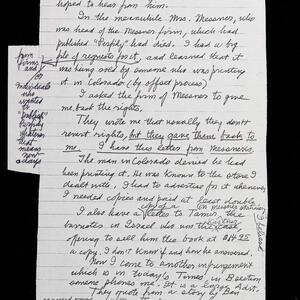 hoped to hear from him.
In the meanwhile Mrs. Messner, who
was head of the Messner firm, which had
published "Porphly" had died. I had a big
pile of requests for it, and learned that it
was being sold by someone who was printing
it in Colorado (by offset process)
I asked the firm of Messner to give
me back the rights.
They wrote me that usually they don't
revert rights, but they gave them back to
me. I have this letter from Messners.
The man in Colorado denied he had
been printing it. He was known to the store I
dealt with. I had to advertise for it whenever
I needed copies and paid at least double
I also have a letter to Tamir, the
barrister in Israel who won the case
offering to sell him the book at $14.25
a copy. I don't know if and how he answered.
Now I come to another infringement
which is in today's Times in Section
someone phones me. It is a large Advt.
They quote from a story by
from
firms
and
or
individuals
who
wanted
to
"publish"
which
whatever
that
means
now
adays
I believe